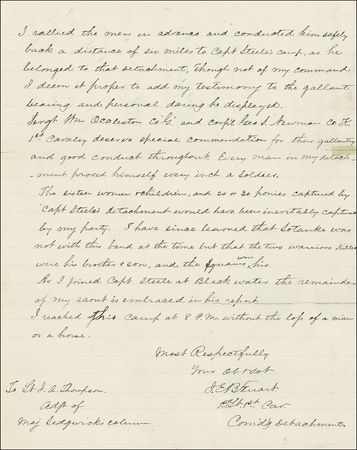 I rallied the men in advance and conducted him safely
back a distance of six miles to Capt Steele's camp, as he
belonged to that detachment, though not of my command.
I deem it proper to add my testimony to the gallant
bearing and personal daring he displayed.
Sergt Wm Occleston Co G. and corpl Geo S Newman Co H
1st Cavalry deserve special commendation for their gallantry
and good conduct throughout. Every man in my detach-
ment proved himself every inch a soldier.
The sixteen women & children, and 30 or 40 ponies captured by
Capt Steele's detachment would have been inevitably captured
by my party. I have since learned that Satanke was
not with this band at the time but that the two warriors killed
were his brother & son, and the squaws his.
As I joined Capt Steele at Black water the remainder
of my scout is embraced in his report
I reached this camp at 8 P.M. without the loss of a man
or a horse.
Most Respectfully
Your Ob Svt
J.E.B Stuart
1st Lt. 1st Cav
Com'dg Detachment.
To Lt J. A. Thompson
Adjt of
Maj Sedgwick's column